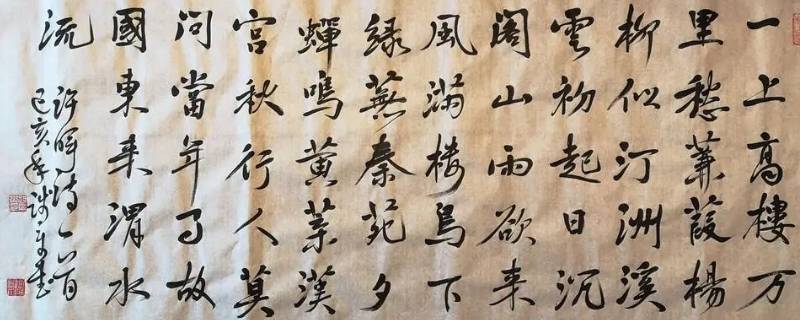 一上高樓万
里愁蒹葭楊
柳似汀洲溪
雲初起日沉
阁山雨欲来
風满楼鸟下
緑蕪秦苑夕
蟬鳴黄葉漢
宫秋行人莫
问當年事故
國東来渭水
流
许晖诗一首
己亥年